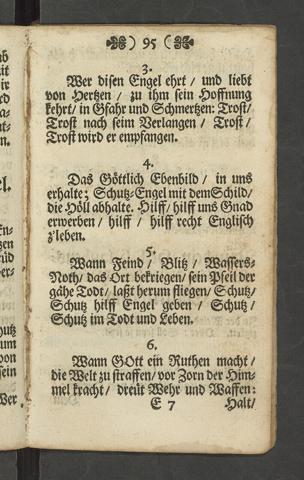 ) 95 (
3.
Wer disen Engel ehrt / und liebt
von Hertzen / zu ihm sein Hoffnung
kehrt / in Gfahr und Schmertzen: Trost /
Trost nach seim Verlangen / Trost /
Trost wird er empfangen.
4.
Das Göttlich Ebenbild / in uns
erhalte; Schutz-Engel mit dem Schild /
die Höll abhalte. Hilff / hilff uns Gnad
erwerben / hilff / hilff recht Englisch
z'leben.
5.
Wann Feind / Blitz / Wassers-
Noth / das Ort bekriegen / sein Pfeil der
gähe Todt / laßt herum fliegen / Schutz /
Schutz hilff Engel geben / Schutz /
Schutz im Todt und Leben.
6.
Wann GOtt ein Ruthen macht /
die Welt zu straffen / vor Zorn der Him-
mel kracht / dreüt Wehr und Waffen:
E 7 Halt /